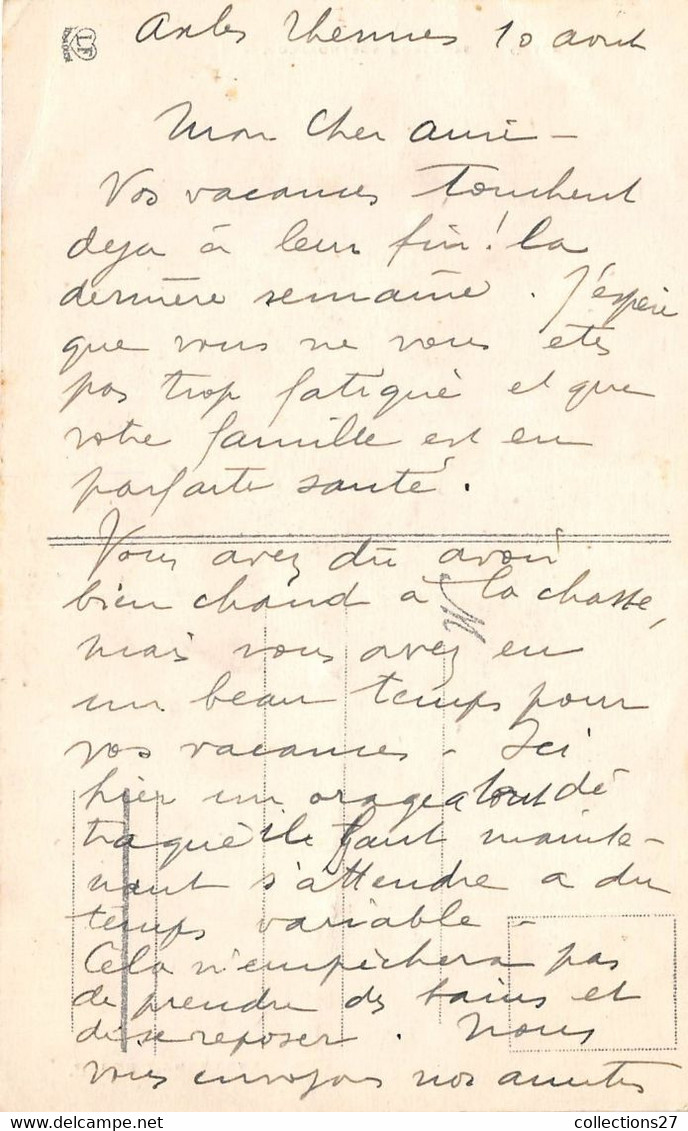 Axles Thermes 10 aout
Mon Cher ami -
Vos vacances touchent
deja à leur fin ! la
dernière semaine. J'espère
que vous ne vous etes
pas trop fatiguè et que
votre famille est en
parfaite santé.
Vous avez du avoir
bien chaud a la chasse,
mais vous avez eu
un beau temps pour
vos vacances - Ici
hier un orage a tout dé
traquè il faut mainte-
nant s'attendre a du
temps variable -
Cela n'empèchera pas
de prendre des bains et
de se reposer. Nous
vous envoyons nos amities
collections27